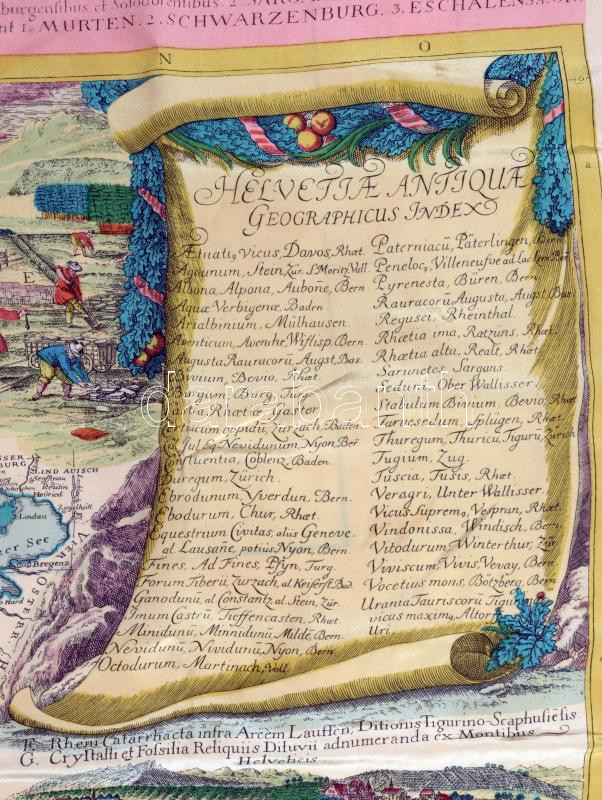 1. MURTEN. 2. SCHWARZENBURG. 3. ESCHALENS.
N O
HELVETIÆ ANTIQUÆ
GEOGRAPHICUS INDEX
Vicus, Davos, Rhæt.
Stein, Zür. S. Moritz, Vall.
Albona, Alpona, Aubone, Bern
Aquæ Verbigenæ, Baden.
Arialbinium, Mülhausen.
Aventicum, Avenhe, Wiflisp. Bern.
Augusta Rauracorū, Augst, Bas.
Bivium, Bevio, Rhæt.
Burgium, Burg, Turg.
Rhæt. Gaster
oppidū, Zurzach, Baden
Nevidunum, Nyon, Ber
Confluentia, Coblenz, Baden.
Duregum, Zürich.
Ebrodunum, Yverdun, Bern.
Ebodurum, Chur, Rhæt.
Equestrium Civitas, aliis Geneve.
al. Lausane, potius Nyon, Bern.
Fines, Ad Fines, Pfyn, Turg.
Forum Tiberii, Zurzach, al Keiserst. Bad.
Ganodunū, al Constantz, al. Stein, Zür.
Imum Castrū, Tieffencasten, Rhæt.
Minidunū, Minnidunū, Milde, Bern.
Nevidunū, Nividunū, Nyon, Bern.
Octodurum, Martinach, Vall.
Paterniacū, Päterlingen, Bern
Penelocꝫ, Villeneufve ad Lac
Pyrenesta, Büren, Bern.
Rauracorū Augusta, Augst, Bas.
Regusci, Rheinthal.
Rhætia ima, Ratzüns, Rhæt.
Rhætia alta, Realt, Rhæt.
Sarunetes, Sargans.
Seduni, Ober Wallisser.
Stabulum Bivium, Bevio, Rhæt.
Tarvesedum, Splügen, Rhæt.
Thuregum, Thuricū, Tigurū, Zürich
Tugium, Zug.
Tuscia, Tusis, Rhæt.
Veragri, Unter Wallisser.
Vicus Supremꝫ, Vespran, Rhæt.
Vindonissa, Windisch, Bern
Vitodurum, Winterthur, Zür.
Viviscum, Vivis, Vevay, Bern.
Vocetius mons, Bötzberg, Bern
Urania Tauriscorū Tigurin
vicus maximꝫ, Altorf
Uri.
darabanth
LINDAUISCH
Lindau
Bregenz
Hard
F. Rheni Catarrhacta infra Arcem Lauffen, Ditionis Tigurino-Scaphusiesis
G. Crystalli et Fossilia Reliquiis Diluvii adnumeranda ex Montibus
Helveticis